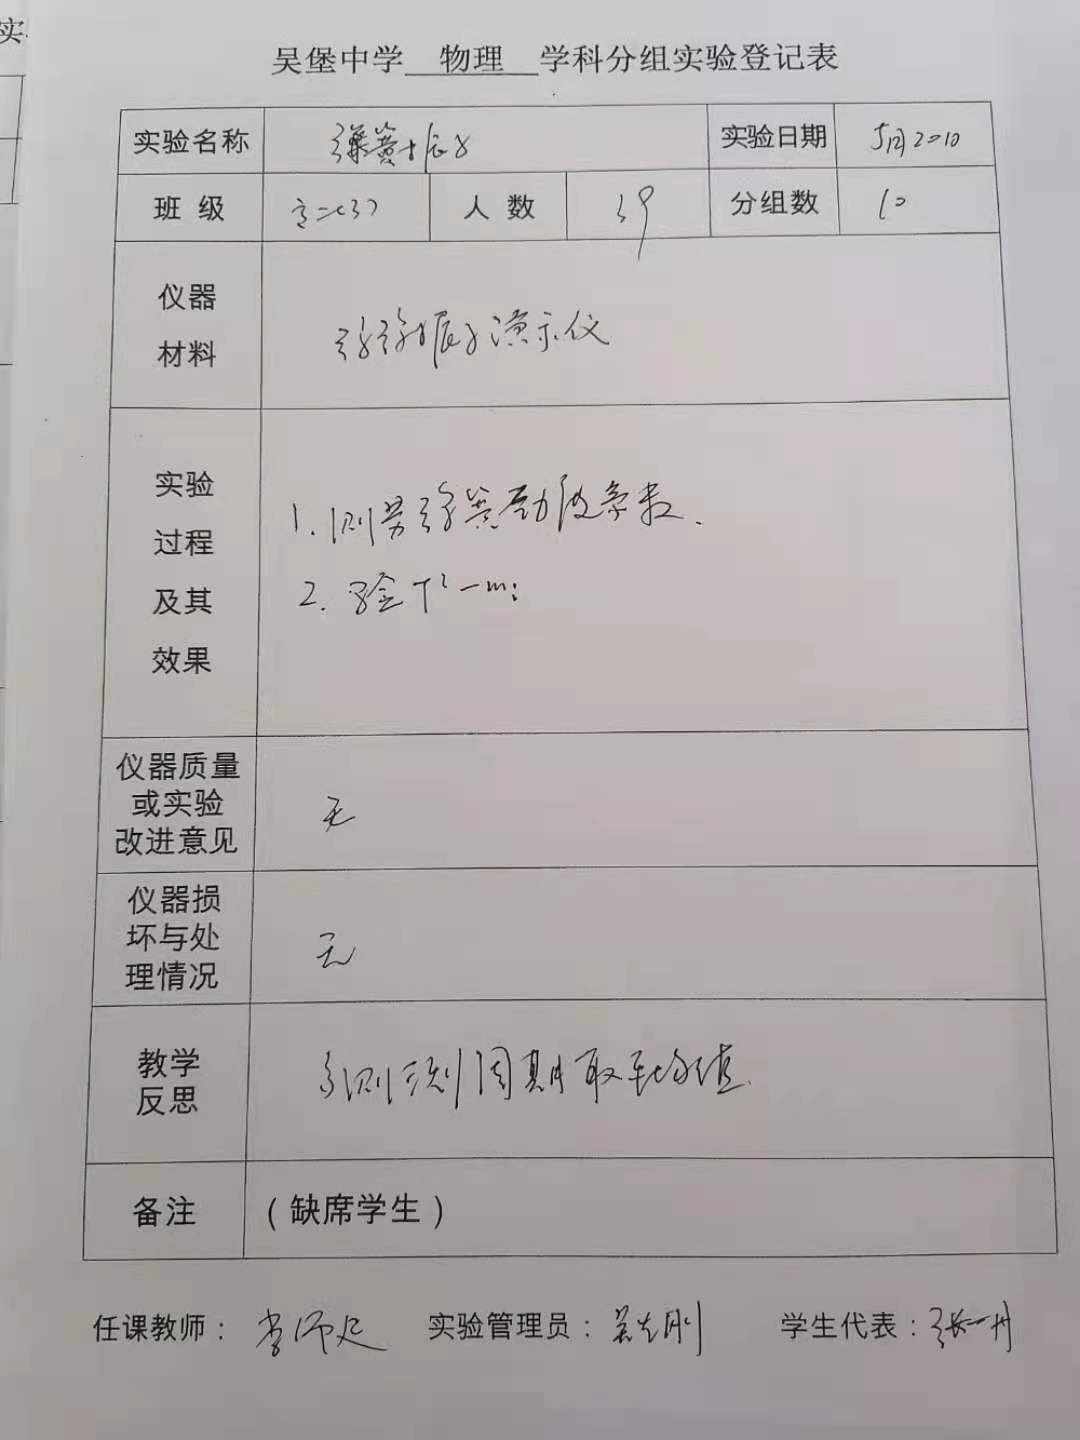 实
吴堡中学 物理 学科分组实验登记表
实验名称 弹簧振子 实验日期 5月2010
班级 高二(3) 人数 39 分组数 10
仪器
材料
弹簧振子演示仪
实验
过程
及其
效果
1. 测 弹簧劲度系数.
2. 验 T²—m;
仪器质量
或实验
改进意见
无
仪器损
坏与处
理情况
无
教学
反思
多测 周期取平均值.
备注 (缺席学生)
任课教师: 李 实验管理员: 刚 学生代表: 张一丹